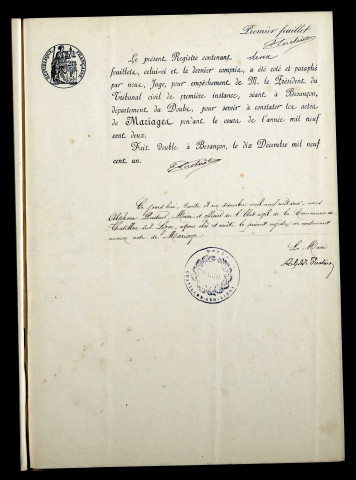 Premier feuillet
RÉPUBLIQUE FRANÇAISE
Le présent Registre contenant deux
feuillets, celui-ci et le dernier compris, a été coté et paraphé
par nous, Juge, pour empêchement de M. le Président du
Tribunal civil de première instance, séant à Besançon,
département du Doubs, pour servir à constater les actes
de Mariages pendant le cours de l'année mil neuf
cent deux.
Fait Double à Besançon, le dix Décembre mil neuf
cent un.
Ce jourd'hui, trente et un décembre mil neuf cent deux, nous
Alphonse Maire et officier de l'État civil de la Commune de
Châtillon sur Lison, avons clos et arrêté le présent registre, ne contenant
aucun acte de Mariage
Le Maire